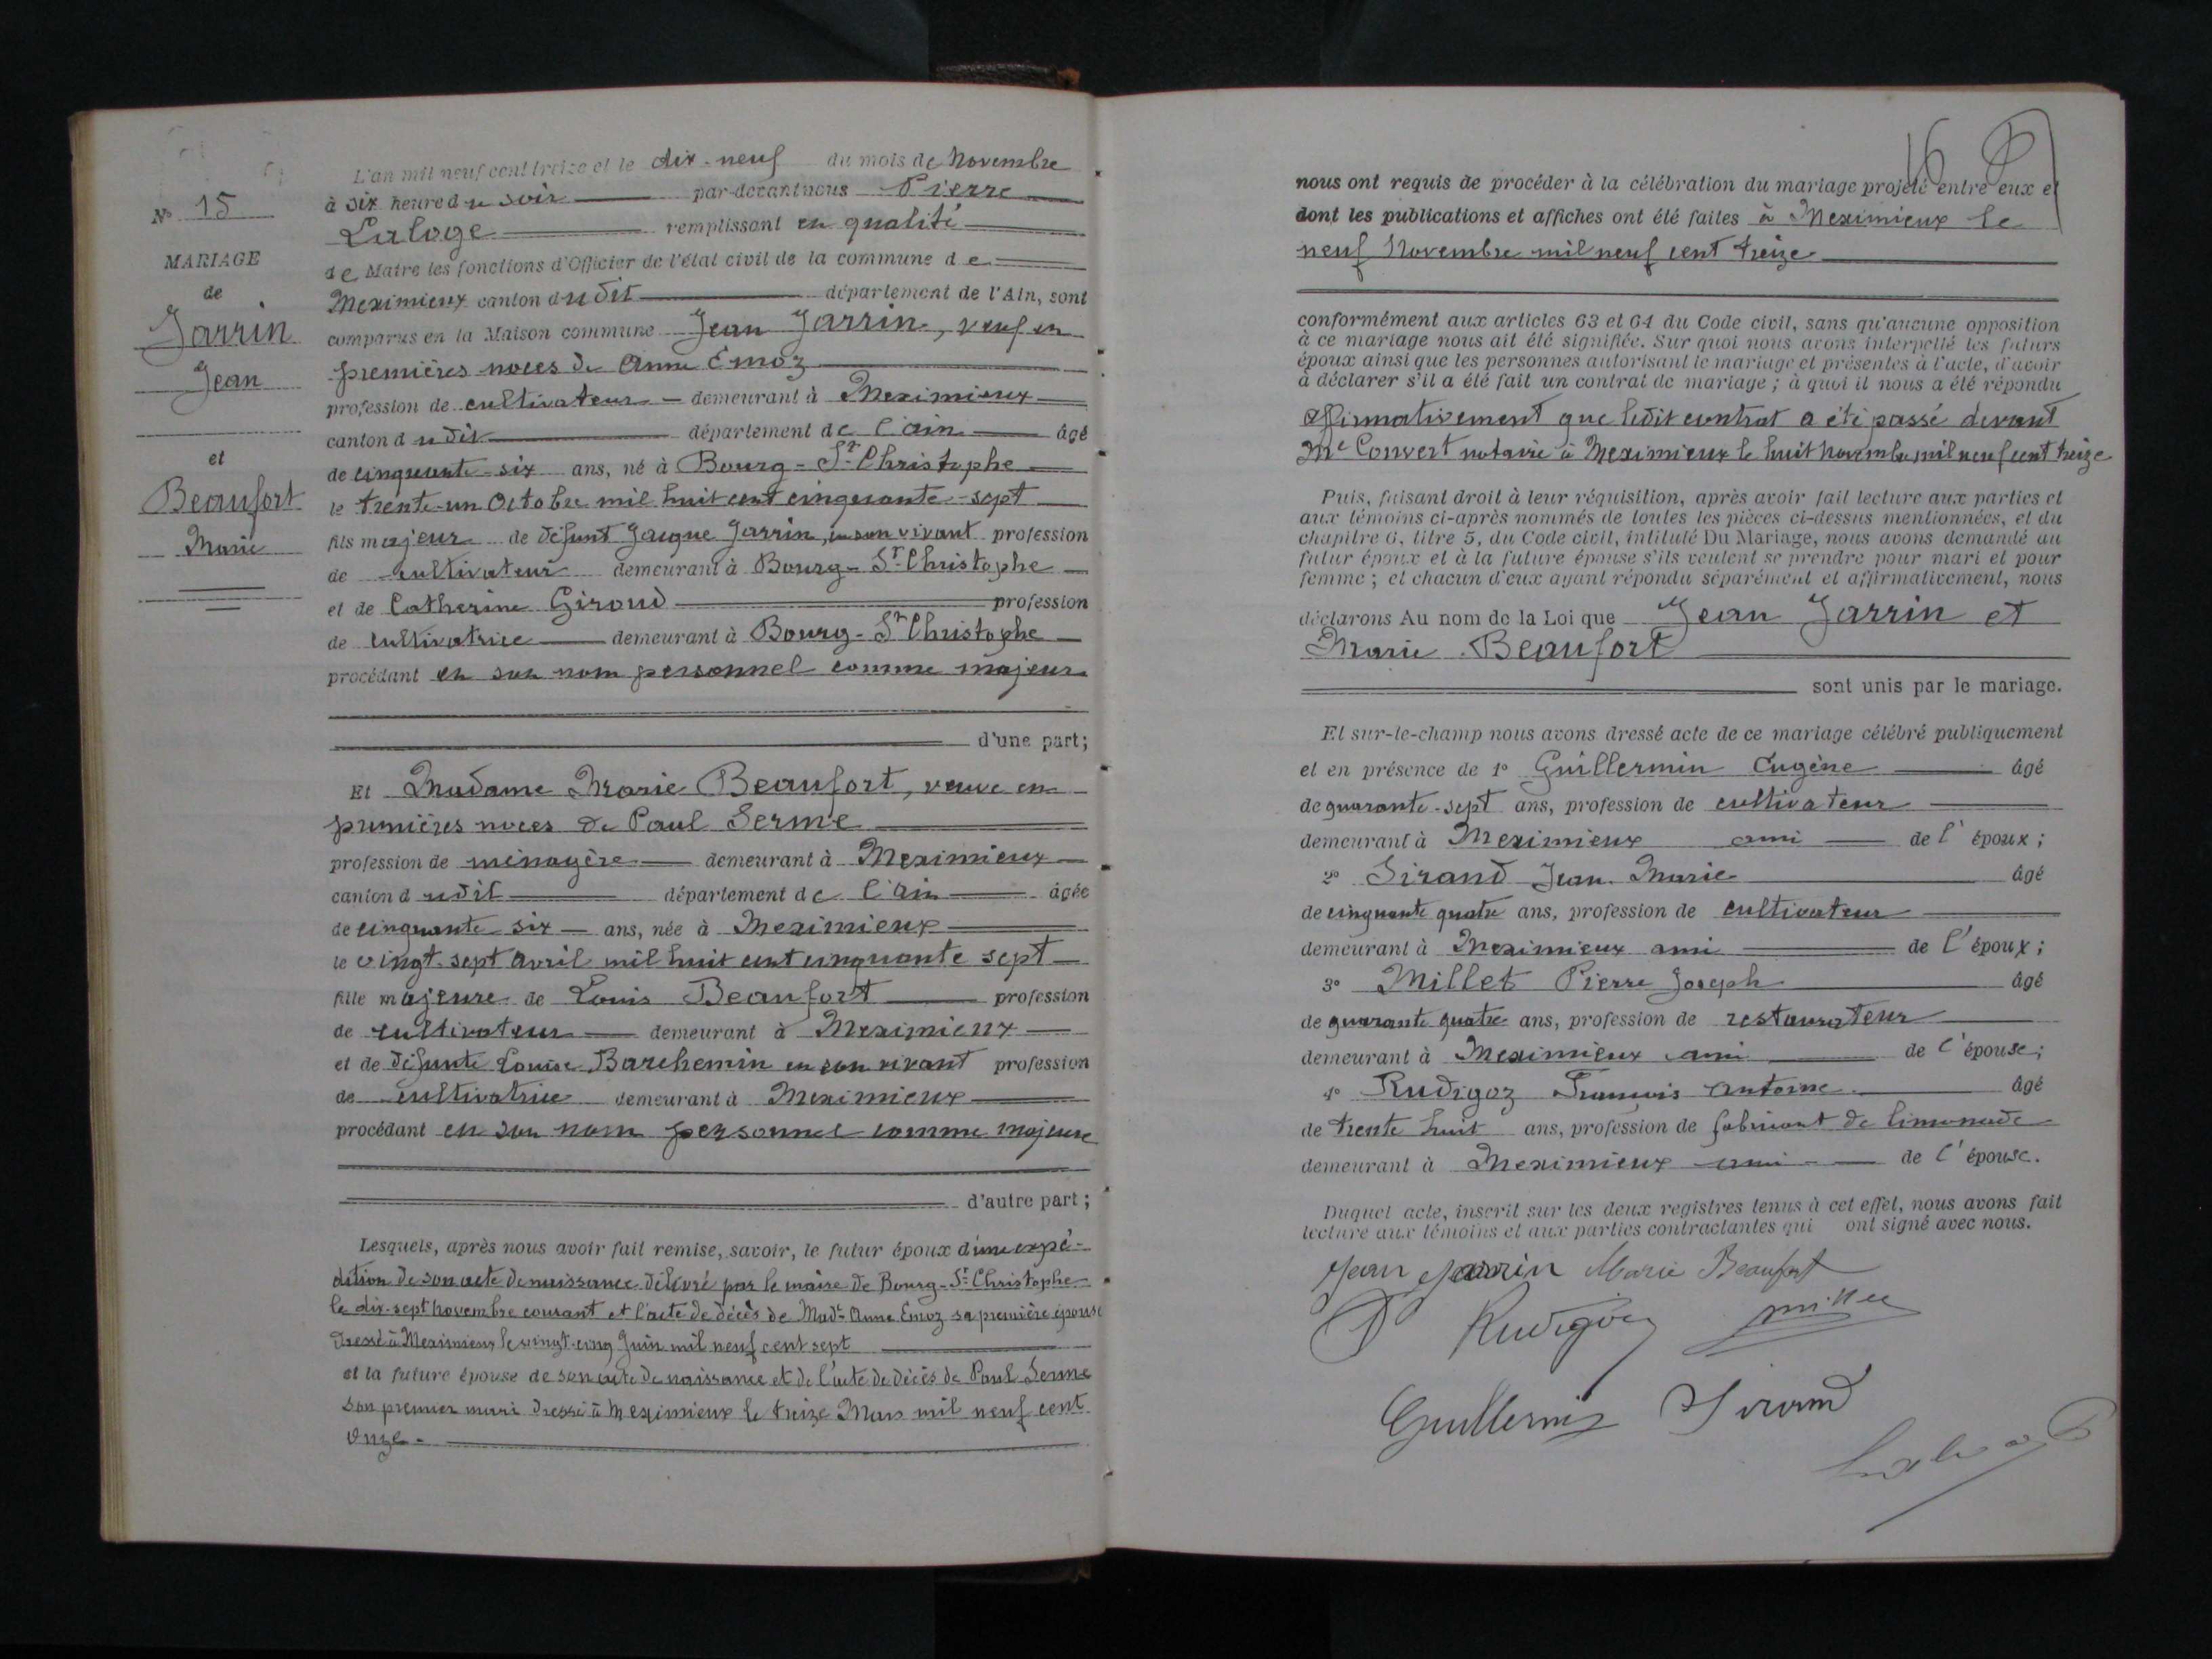 N° 15
MARIAGE
de
Jarrin
Jean
et
Beaufort
Marie
L'an mil neuf cent treize et le dix-neuf du mois de Novembre
à six heure du soir par-devant nous Pierre
Laloge remplissant en qualité
de Maire les fonctions d'Officier de l'état civil de la commune de
Meximieux canton dudit département de l'Ain, sont
comparus en la Maison commune Jean Jarrin, veuf en
premières noces de Anne Émoz
profession de cultivateur demeurant à Meximieux
canton dudit département de l'Ain âgé
de cinquante-six ans, né à Bourg-St-Christophe
le trente-un Octobre mil huit cent cinquante-sept
fils majeur de défunt Jacque Jarrin, en son vivant profession
de cultivateur demeurant à Bourg-St-Christophe
et de Catherine Giroud profession
de cultivatrice demeurant à Bourg-St-Christophe
procédant en son nom personnel comme majeur
d'une part;
Et Madame Marie Beaufort, veuve en
premières noces de Paul Serme
profession de ménagère demeurant à Meximieux
canton dudit département de l'Ain âgée
de cinquante six ans, née à Meximieux
le vingt-sept avril mil huit cent cinquante sept
fille majeure de Louis Beaufort profession
de cultivateur demeurant à Meximieux
et de défunte Louise Barchemin en son vivant profession
de cultivatrice demeurant à Meximieux
procédant en son nom personnel comme majeure
d'autre part;
Lesquels, après nous avoir fait remise, savoir, le futur époux d'une expé-
dition de son acte de naissance délivré par le maire de Bourg-St-Christophe
le dix-sept novembre courant et l'acte de décès de Made Anne Émoz sa première épouse
dressé à Meximieux le vingt-cinq Juin mil neuf cent sept
et la future épouse de son acte de naissance et de l'acte de décès de Paul Serme
son premier mari dressé à Meximieux le treize Mars mil neuf cent
onze.
16
nous ont requis de procéder à la célébration du mariage projeté entre eux et
dont les publications et affiches ont été faites à Meximieux le
neuf Novembre mil neuf cent treize
conformément aux articles 63 et 64 du Code civil, sans qu'aucune opposition
à ce mariage nous ait été signifiée. Sur quoi nous avons interpellé les futurs
époux ainsi que les personnes autorisant le mariage et présentes à l'acte, d'avoir
à déclarer s'il a été fait un contrat de mariage; à quoi il nous a été répondu
affirmativement que ledit contrat a été passé devant
Me Convert notaire à Meximieux le huit novembre mil neuf cent treize
Puis, faisant droit à leur réquisition, après avoir fait lecture aux parties et
aux témoins ci-après nommés de toutes les pièces ci-dessus mentionnées, et du
chapitre 6, titre 5, du Code civil, intitulé Du Mariage, nous avons demandé au
futur époux et à la future épouse s'ils veulent se prendre pour mari et pour
femme; et chacun d'eux ayant répondu séparément et affirmativement, nous
déclarons Au nom de la Loi que Jean Jarrin et
Marie Beaufort
sont unis par le mariage.
Et sur-le-champ nous avons dressé acte de ce mariage célébré publiquement
et en présence de 1° Guillermin Eugène âgé
de quarante-sept ans, profession de cultivateur
demeurant à Meximieux ami de l'époux;
2° Sirand Jean Marie âgé
de cinquante quatre ans, profession de cultivateur
demeurant à Meximieux ami de l'époux;
3° Millet Pierre Joseph âgé
de quarante quatre ans, profession de restaurateur
demeurant à Meximieux ami de l'épouse;
4° Rudigoz François Antoine âgé
de trente huit ans, profession de fabricant de limonade
demeurant à Meximieux ami de l'épouse.
Duquel acte, inscrit sur les deux registres tenus à cet effet, nous avons fait
lecture aux témoins et aux parties contractantes qui ont signé avec nous.
Jean Jarrin Marie Beaufort
Rudigoz Millet
Guillermin Sirand
Laloge